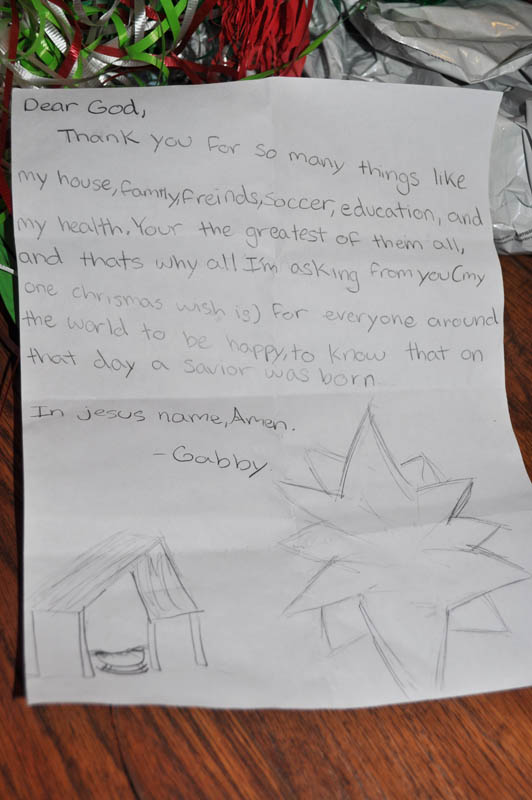 Dear God,
Thank you for so many things like
my house, family, freinds, soccer, education, and
my health. Your the greatest of them all,
and thats why all I'm asking from you (my
one chrismas wish is) for everyone around
the world to be happy, to know that on
that day a savior was born
In jesus name, Amen.
- Gabby